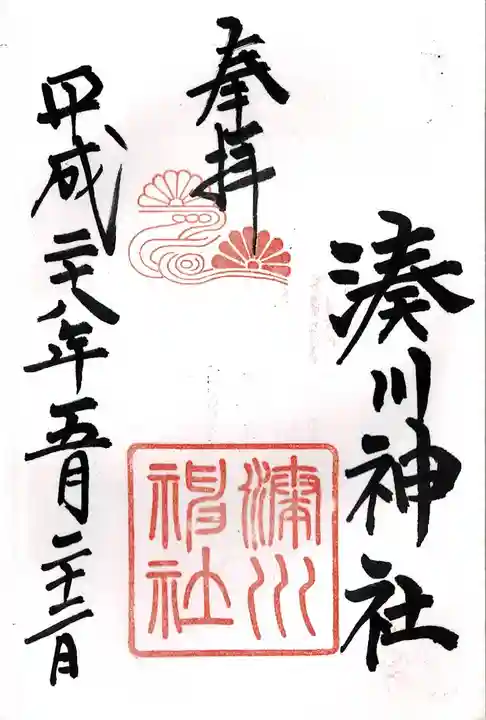 湊川神社
奉拝
平成二十八年五月二十二日
湊川
神社